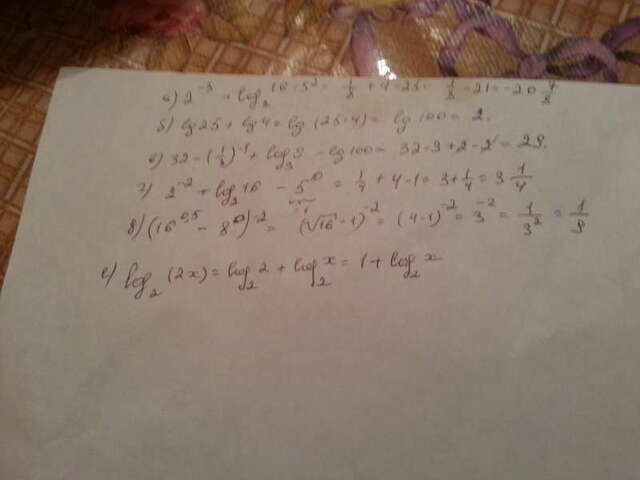 а) 2^-3 + log_2 16 - 5^2 = 1/8 + 4 - 25 = 1/8 - 21 = -20 7/8
б) lg25 + lg4 = lg (25·4) = lg 100 = 2.
в) 32 - (1/3)^-1 + log_3 9 - lg100 = 32 - 3 + 2 - 2 = 29.
г) 2^-2 + log_2 16 - 5^0 = 1/4 + 4 - 1 = 3 + 1/4 = 3 1/4
1
д) (16^0,5 - 8^0)^-2 = (√16 - 1)^-2 = (4-1)^-2 = 3^-2 = 1/3^2 = 1/9
е) log_2 (2x) = log_2 2 + log_2 x = 1 + log_2 x